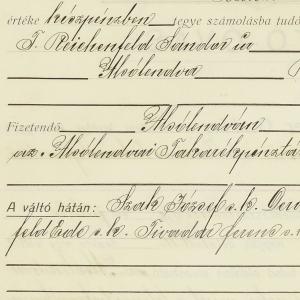 értéke készpénzben tegye számolásba tudó
T. Reichenfeld Sándor úr
Alsólendva
Fizetendő Alsólendván
az Alsólendvai Takarékpénztá
A váltó hátán: Szak József s.k. Deu
feld Ede s.k. Tivadar Ferenc s.k